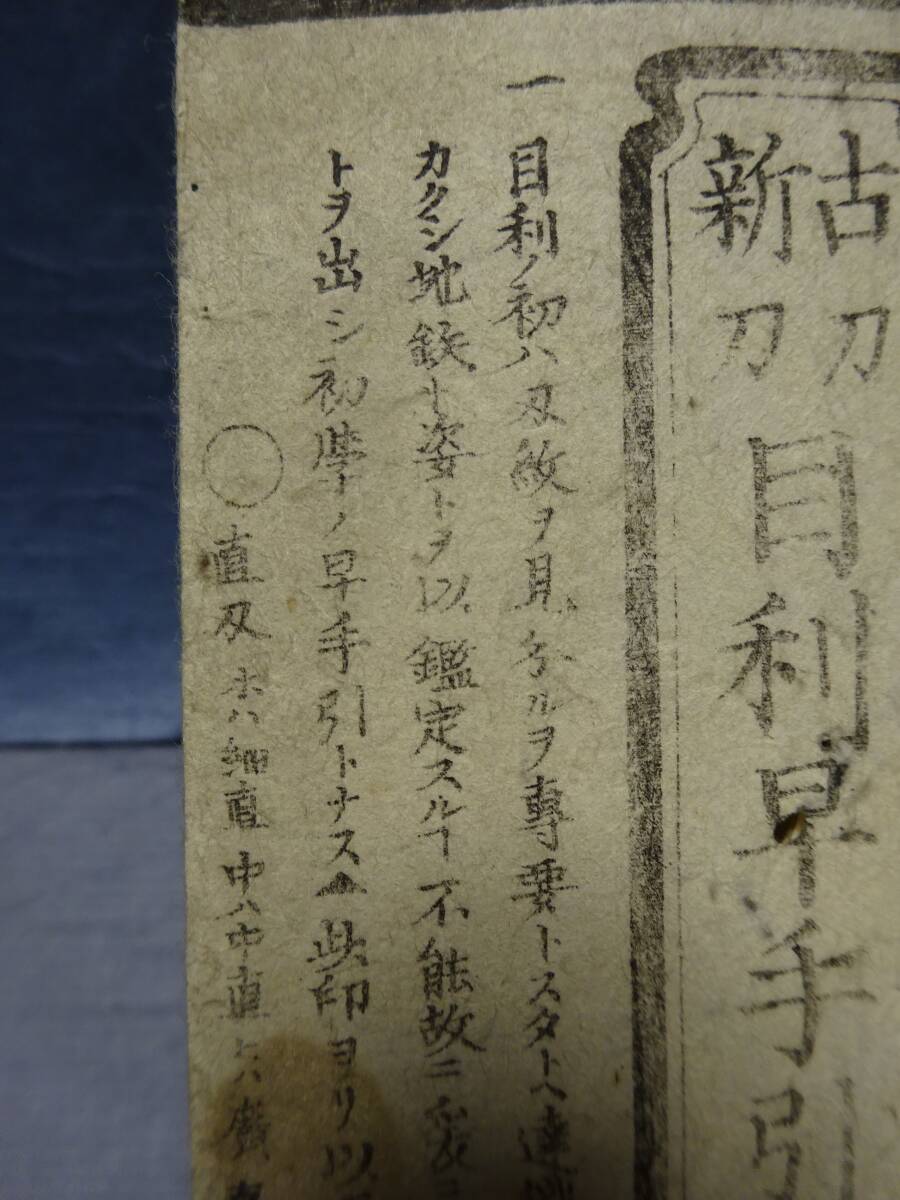 古刀
新刀
目利早手引
一目利ノ初ハ刃敏ヲ見分ルヲ専要トスタトヘ達
カクシ地鉄ト姿トヲ以鑑定スルヿ不能故ニ
トヲ出シ初学ノ早手引トナス 此印ヨリ以
○直刃 ホハ細直 中ハ中直 ヒハ廣